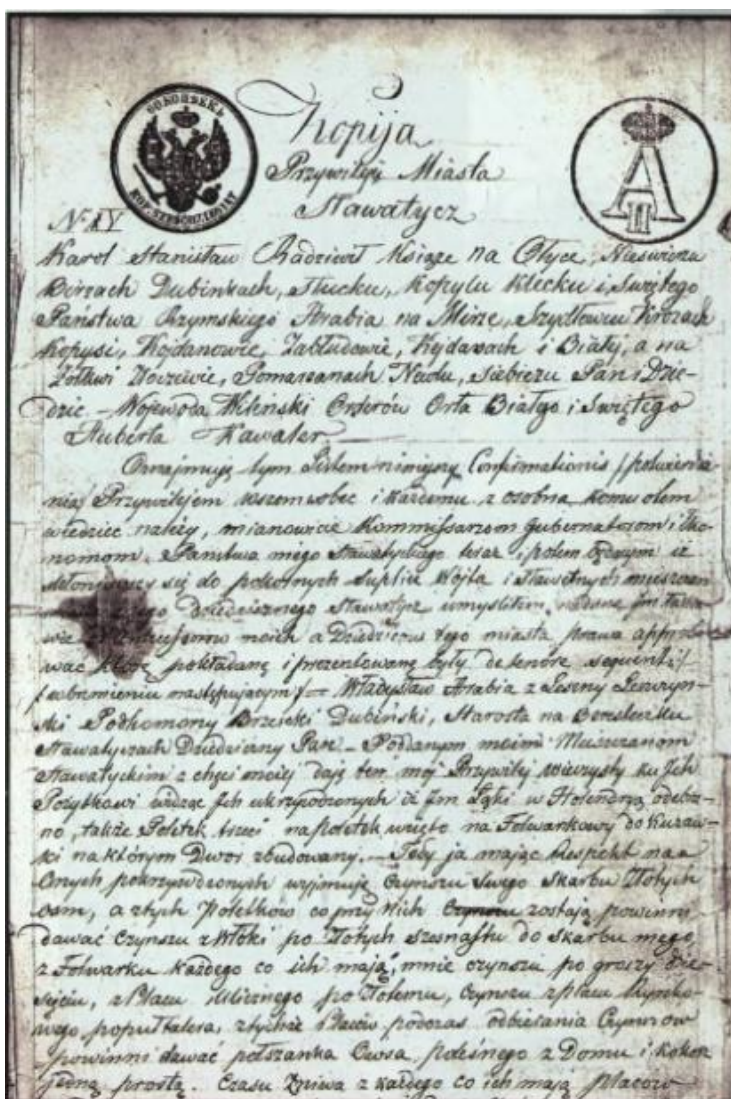 Kopija
Przywileju Miasta
Sławatycz
Karol Stanisław Radziwił Książe na Ołyce, Nieświżu
Birżach Dubinkach, Słucku, Kopylu Klecku i Swiętego
Państwa Rzymskiego Hrabia na Mirze, Szydłowcu Krożach
Kopysi, Kojdanowie, Zabłudowie, Kejdanach i Biały, a na
Żółkwi Złoczewie, Pomarzanach Newlu, Siebieżu Pan i Dzie-
dzic – Wojewoda Wileński Orderów Orła Białego i Swiętego
Huberta Kawaler.
Oznajmuję tym Listem niniejszy Confirmationis /potwierdze
nia/ Przywilejem wszem wobec i każdemu z osobna komu o tem
wiedzieć należy, mianowicie Kommissarzom Gubernatorom i Eko-
nomom Państwa mego Sławatyckiego teraz i potem będącym iż
skłoniwszy się do pokornych Suplik Wójta i Sławetnych mieszczan
dziedzicznego Sławatycz umyśliłem nadane im
Antecessorów moich a Dziedziców tego miasta prawa approbo
wać które pokładane i prezentowane były de tenore sequenti /
/ w brzmieniu następującym / – Władysław Hrabia z Leszny Leszczyń-
ski Podkomorzy Brzeski Dubiński, Starosta na
Sławatyczach Dziedziczny Pan – Poddanym moim Mieszczanom
Sławatyckim z chęci mojej daję ten mój Przywilej wieczysty ku Ich
Pożytkowi widząc Ich ukrzywdzonych iż Im Łąki w Holendrzą odebra-
no, także Poletek trzeci na poletek wzięto na Folwarkowy do Kuzaw-
ki na którym Dwór zbudowany. – Tedy ja mając Respekt na
Onych pokrzywdzonych wyjmuję Czynszu Swego Skarbu Złotych
osm, a z tych Poletków co przy Nich zostają powinni
dawać Czynszu z Włóki po Złotych szesnastu do Skarbu mego,
z Folwarku każdego co ich mają, mnie czynszu po groszy dzie-
sięciu, z Placu Ulicznego po Złotemu, Czynszu z placu Rynko-
wego po pułtalera, z tychże Placów podczas odbierania Czynszow
powinni dawać połszanka Owsa, poleśnego z Domu i Kokosz
jedną prostą. Czasu Żniwa z każdego co ich mają Placow